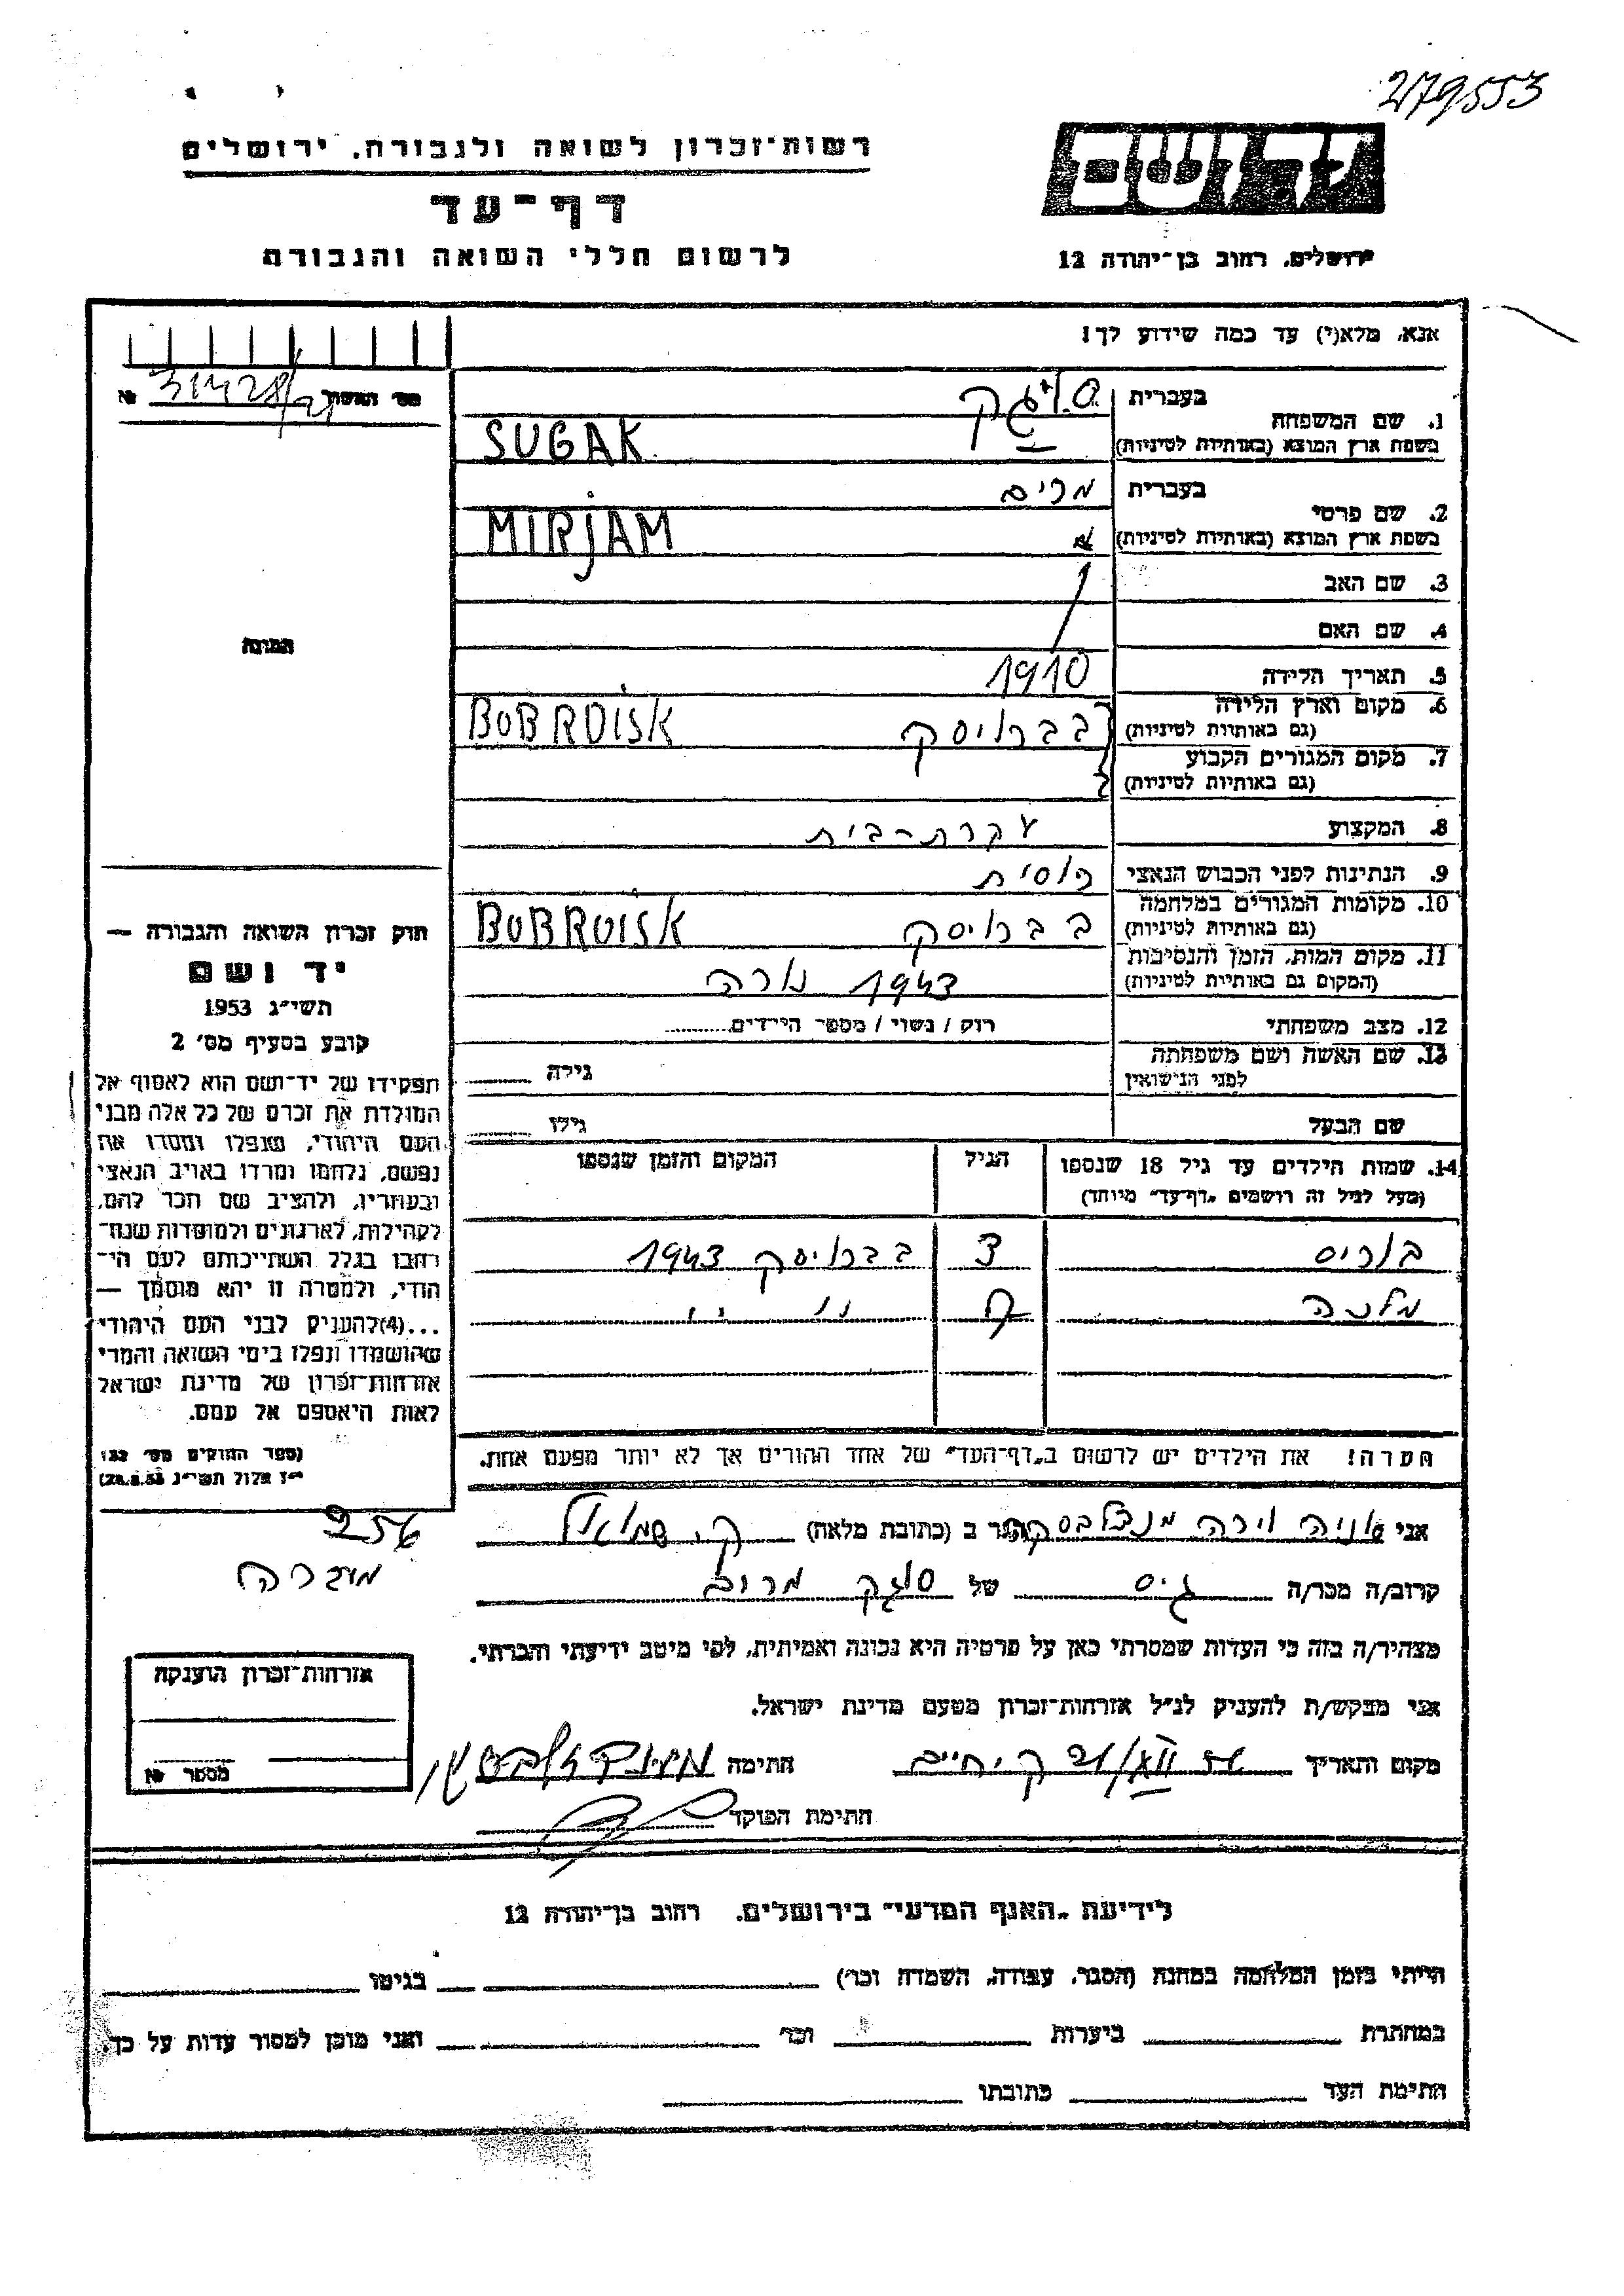 279553
רשות־זכרון לשואה ולגבורה, ירושלים
דף־עד
לרשום חללי השואה והגבורה
ירושלים, רחוב בן־יהודה 12
אנא, מלא(י) עד כמה שידוע לך!
בעברית
1. שם המשפחה
בשפת ארץ המוצא (באותיות לטיניות) SUGAK
בעברית מרים
2. שם פרטי
בשפת ארץ המוצא (באותיות לטיניות) MIRJAM
3. שם האב
4. שם האם
5. תאריך הלידה 1910
6. מקום וארץ הלידה
(גם באותיות לטיניות) בברויסק BOBROISK
7. מקום המגורים הקבוע
(גם באותיות לטיניות)
8. המקצוע עקרת-בית
9. הנתינות לפני הכבוש הנאצי רוסית
10. מקומות המגורים במלחמה
(גם באותיות לטיניות) בברויסק BOBROISK
11. מקום המות, הזמן והנסיבות
(המקום גם באותיות לטיניות) 1943 נורה
12. מצב משפחתי רווק / נשוי / מספר הילדים
13. שם האשה ושם משפחתה
לפני הנישואין גילה
שם הבעל גילו
14. שמות הילדים עד גיל 18 שנספו הגיל המקום והזמן שנספו
(מעל לגיל זה רושמים „דף־עד” מיוחד)
בוריס 3 בברויסק 1943
מלכה " "
הערה! את הילדים יש לרשום ב„דף־העד” של אחד ההורים אך לא יותר מפעם אחת.
מס׳ האשור №
התמונה
חוק זכרון השואה והגבורה —
יד ושם
תשי״ג 1953
קובע בסעיף מס׳ 2
תפקידו של יד־ושם הוא לאסוף אל
המולדת את זכרם של כל אלה מבני
העם היהודי, שנפלו ומסרו את
נפשם, נלחמו ומרדו באויב הנאצי
ובעוזריו, ולהציב שם וזכר להם,
לקהילות, לארגונים ולמוסדות שנח־
רבו בגלל השתייכותם לעם הי־
הודי, ולמטרה זו יהא מוסמך —
...(4)להעניק לבני העם היהודי
שהושמדו ונפלו בימי השואה והמרי
אזרחות־זכרון של מדינת ישראל
לאות היאספם אל עמם.
(ספר החוקים מס׳ 132
י״ז אלול תשי״ג 28.8.53)
256
אני הגר ב (כתובת מלאה) ק. שמואל
קרוב/ה מכר/ה גיס של סוגק מרים
מצהיר/ה בזה כי העדות שמסרתי כאן על פרטיה היא נכונה ואמיתית, לפי מיטב ידיעתי והכרתי.
אני מבקש/ת להעניק לנ״ל אזרחות־זכרון מטעם מדינת ישראל.
מקום ותאריך ק. חיים חתימה
חתימת הפוקד
אזרחות־זכרון הוענקה
מספר №
לידיעת „האגף המדעי” בירושלים, רחוב בן־יהודה 12
הייתי בזמן המלחמה במחנה (הסגר, עבודה, השמדה וכו׳) בגיטו
במחתרת ביערות וכו׳ ואני מוכן למסור עדות על כך.
חתימת העד כתובתו